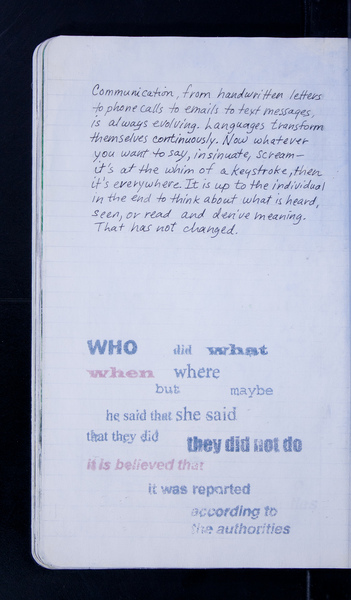 Communication, from handwritten letters
to phone calls to emails to text messages,
is always evolving. Languages transform
themselves continuously. Now whatever
you want to say, insinuate, scream—
it's at the whim of a keystroke, then
it's everywhere. It is up to the individual
in the end to think about what is heard,
seen, or read and derive meaning.
That has not changed.
WHO did what
when where
but maybe
he said that she said
that they did they did not do
it is believed that
it was reported
according to
the authorities